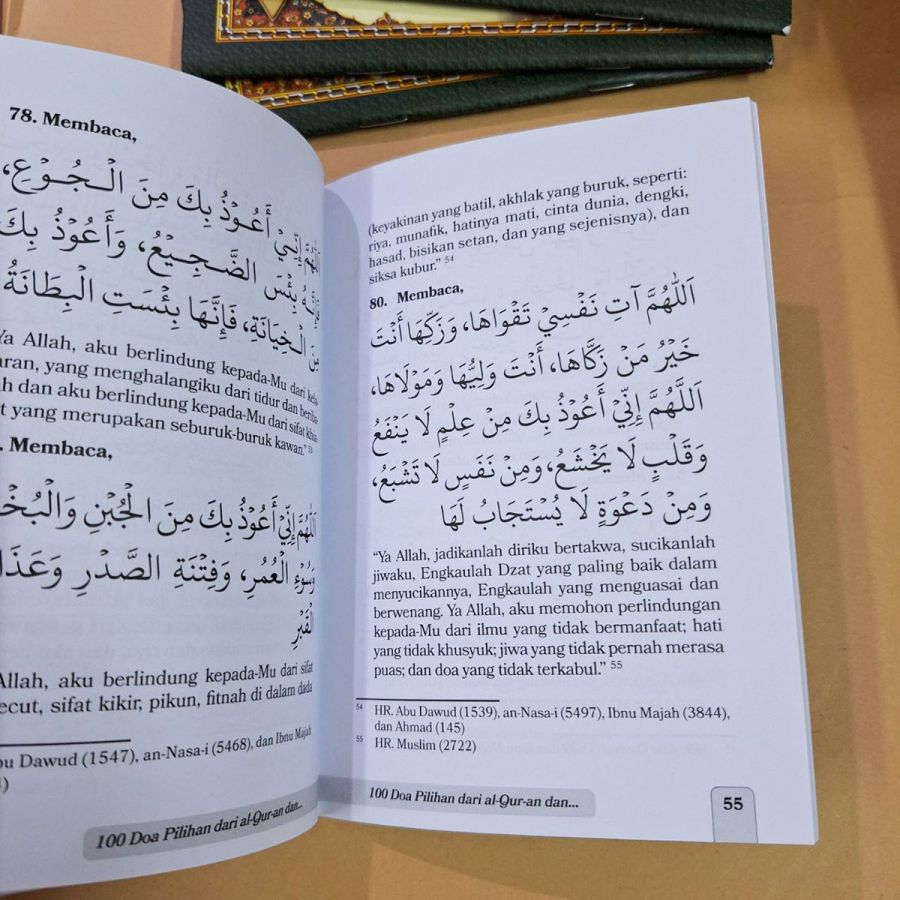 78. Membaca,
اَللّٰهُمَّ إِنِّيْ أَعُوْذُ بِكَ مِنَ الْجُوْعِ،
فَإِنَّهُ بِئْسَ الضَّجِيْعُ، وَأَعُوْذُ بِكَ
مِنَ الْخِيَانَةِ، فَإِنَّهَا بِئْسَتِ الْبِطَانَةُ
Ya Allah, aku berlindung kepada-Mu dari
yang menghalangiku dari tidur dan
dan aku berlindung kepada-Mu dari sifat
yang merupakan seburuk-buruk kawan." 53
Membaca,
اَللّٰهُمَّ إِنِّيْ أَعُوْذُ بِكَ مِنَ الْجُبْنِ
وَسُوْءِ الْعُمُرِ، وَفِتْنَةِ الصَّدْرِ
الْقَبْرِ
Allah, aku berlindung kepada-Mu dari sifat
sifat kikir, pikun, fitnah di dalam dada
Dawud (1547), an-Nasa-i (5468), dan Ibnu Majah
100 Doa Pilihan dari al-Qur-an dan...
(keyakinan yang batil, akhlak yang buruk, seperti:
riya, munafik, hatinya mati, cinta dunia, dengki,
hasad, bisikan setan, dan yang sejenisnya), dan
siksa kubur." 54
80. Membaca,
اَللّٰهُمَّ آتِ نَفْسِيْ تَقْوَاهَا، وَزَكِّهَا أَنْتَ
خَيْرُ مَنْ زَكَّاهَا، أَنْتَ وَلِيُّهَا وَمَوْلَاهَا،
اَللَّهُمَّ إِنِّيْ أَعُوْذُ بِكَ مِنْ عِلْمٍ لَا يَنْفَعُ
وَقَلْبٍ لَا يَخْشَعُ، وَمِنْ نَفَسٍ لَا تَشْبَعُ،
وَمِنْ دَعْوَةٍ لَا يُسْتَجَابُ لَهَا
"Ya Allah, jadikanlah diriku bertakwa, sucikanlah
jiwaku, Engkaulah Dzat yang paling baik dalam
menyucikannya, Engkaulah yang menguasai dan
berwenang. Ya Allah, aku memohon perlindungan
kepada-Mu dari ilmu yang tidak bermanfaat; hati
yang tidak khusyuk; jiwa yang tidak pernah merasa
puas; dan doa yang tidak terkabul." 55
54 HR. Abu Dawud (1539), an-Nasa-i (5497), Ibnu Majah (3844),
dan Ahmad (145)
55 HR. Muslim (2722)
100 Doa Pilihan dari al-Qur-an dan...
55